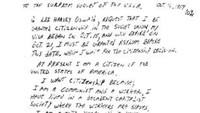 TO THE SUPREME SOVIET OF THE U.S.S.R.
I, LEE HARVEY OSWALD, REQUEST THAT I BE
GRANTED CITIZENSHIP IN THE SOVIET UNION, MY
VISA BEGAN ON OCT. 15, AND WILL EXPIRE ON
OCT. 21, I MUST BE GRANTED ASYLUM BEFORE
THIS DATE, WHILE I WAIT FOR THE CITIZENSHIP DECISION.
AT PRESENT I AM A CITIZEN OF THE
UNITED STATES OF AMERICA.
I WANT CITIZENSHIP BECAUSE,
I AM A COMMUNIST AND A WORKER, I
HAVE LIVED IN A DECADENT CAPITALIST
SOCIETY WHERE THE WORKERS ARE SLAVES,